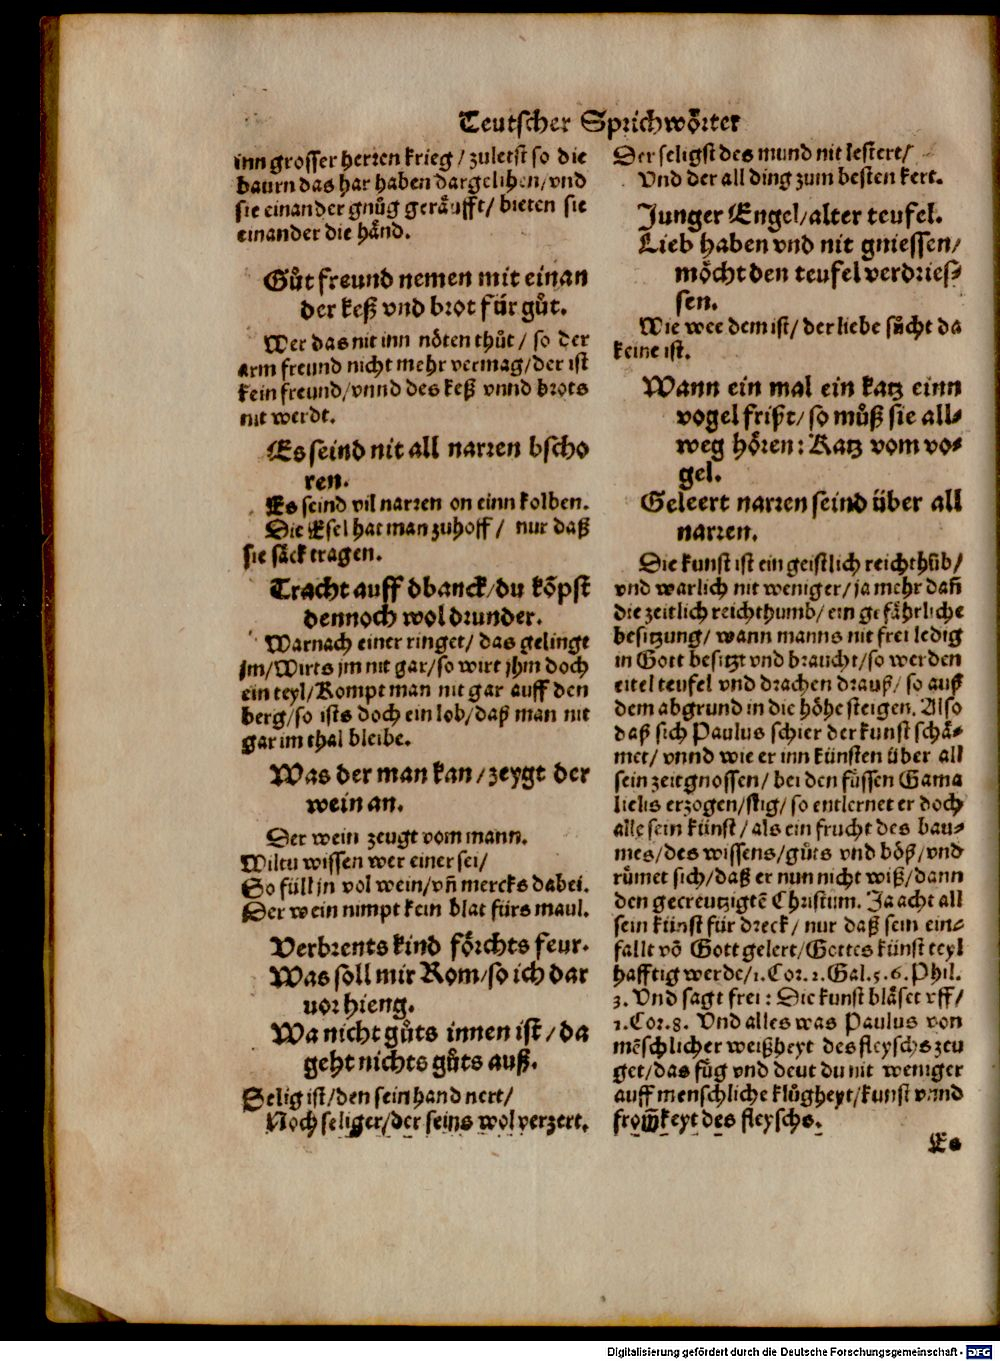 Teutscher Sprichwörter
inn grosser herren krieg / zuletst so die
baurn das har haben dargelihen / vnd
sie einander gnůg geräufft / bieten sie
einander die händ.
Gůt freund nemen mit einan
der keß vnd brot für gůt.
Wer das nit inn nöten thůt / so der
arm freund nicht mehr vermag / der ist
kein freund / vnnd des keß vnnd brots
nit werdt.
Es seind nit all narren bscho
ren.
Es seind vil narren on einn kolben.
Die Esel hat man zuhoff / nur daß
sie säck tragen.
Tracht auff dbanck / du köpst
dennoch wol drunder.
Warnach einer ringet / das gelingt
jm / Wirts jm nit gar / so wirt jhm doch
ein teyl / Kompt man nit gar auff den
berg / so ists doch ein lob / daß man nit
gar im thal bleibe.
Was der man kan / zeygt der
wein an.
Der wein zeugt vom mann.
Wiltu wissen wer einer sei /
So füll jn vol wein / vn̄ mercks dabei.
Der wein nimpt kein blat fürs maul.
Verbrents kind förchts feur.
Was soll mir Rom / so ich dar
vor hieng.
Wa nicht gůts innen ist / da
geht nichts gůts auß.
Selig ist / den sein hand nert /
Noch seliger / der seins wol verzert.
Der seligst des mund nit lestert /
Vnd der all ding zum besten kert.
Junger Engel / alter teufel.
Lieb haben vnd nit gniessen /
möcht den teufel verdries⸗
sen.
Wie wee dem ist / der liebe sůcht da
keine ist.
Wann ein mal ein katz einn
vogel frißt / so můß sie all⸗
weg hören : Katz vom vo⸗
gel.
Geleert narren seind über all
narren.
Die kunst ist ein geistlich reichthůb /
vnd warlich nit weniger / ja mehr dan̄
die zeitlich reichthumb / ein gefährliche
besitzung / wann manns nit frei ledig
in Gott besitzt vnd braucht / so werden
eitel teufel vnd drachen drauß / so auß
dem abgrund in die höhe steigen. Also
daß sich Paulus schier der kunst schä⸗
met / vnnd wie er inn künsten über all
sein zeitgnossen / bei den füssen Gama
lielis erzogen / stig / so entlernet er doch
alle sein künst / als ein frucht des bau⸗
mes / des wissens / gůts vnd böß / vnd
růmet sich / daß er nun nicht wiß / dann
den gecreutzigtē Christum. Ja acht all
sein künst für dreck / nur daß sein ein⸗
fallt vō Gott gelert / Gottes künst teyl
hafftig werde / 1. Cor. 2. Gal. 5. 6. Phil.
3. Vnd sagt frei : Die kunst bläset vff /
1. Cor. 8. Vnd alles was Paulus von
mēschlicher weißheyt des fleyschs zeu
get / das fůg vnd deut du nit weniger
auff menschliche klůgheyt / kunst vnnd
from̄keyt des fleyschs.
Es
Digitalisierung gefördert durch die Deutsche Forschungsgemeinschaft - DFG